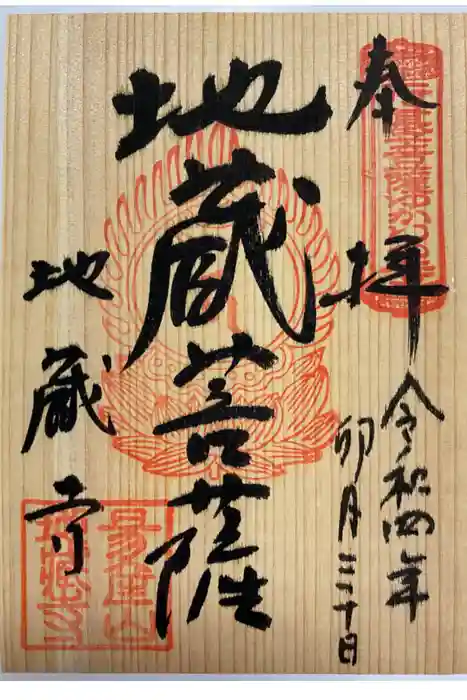 奉拝
令和四年
卯月三十日
地蔵菩薩
地蔵寺